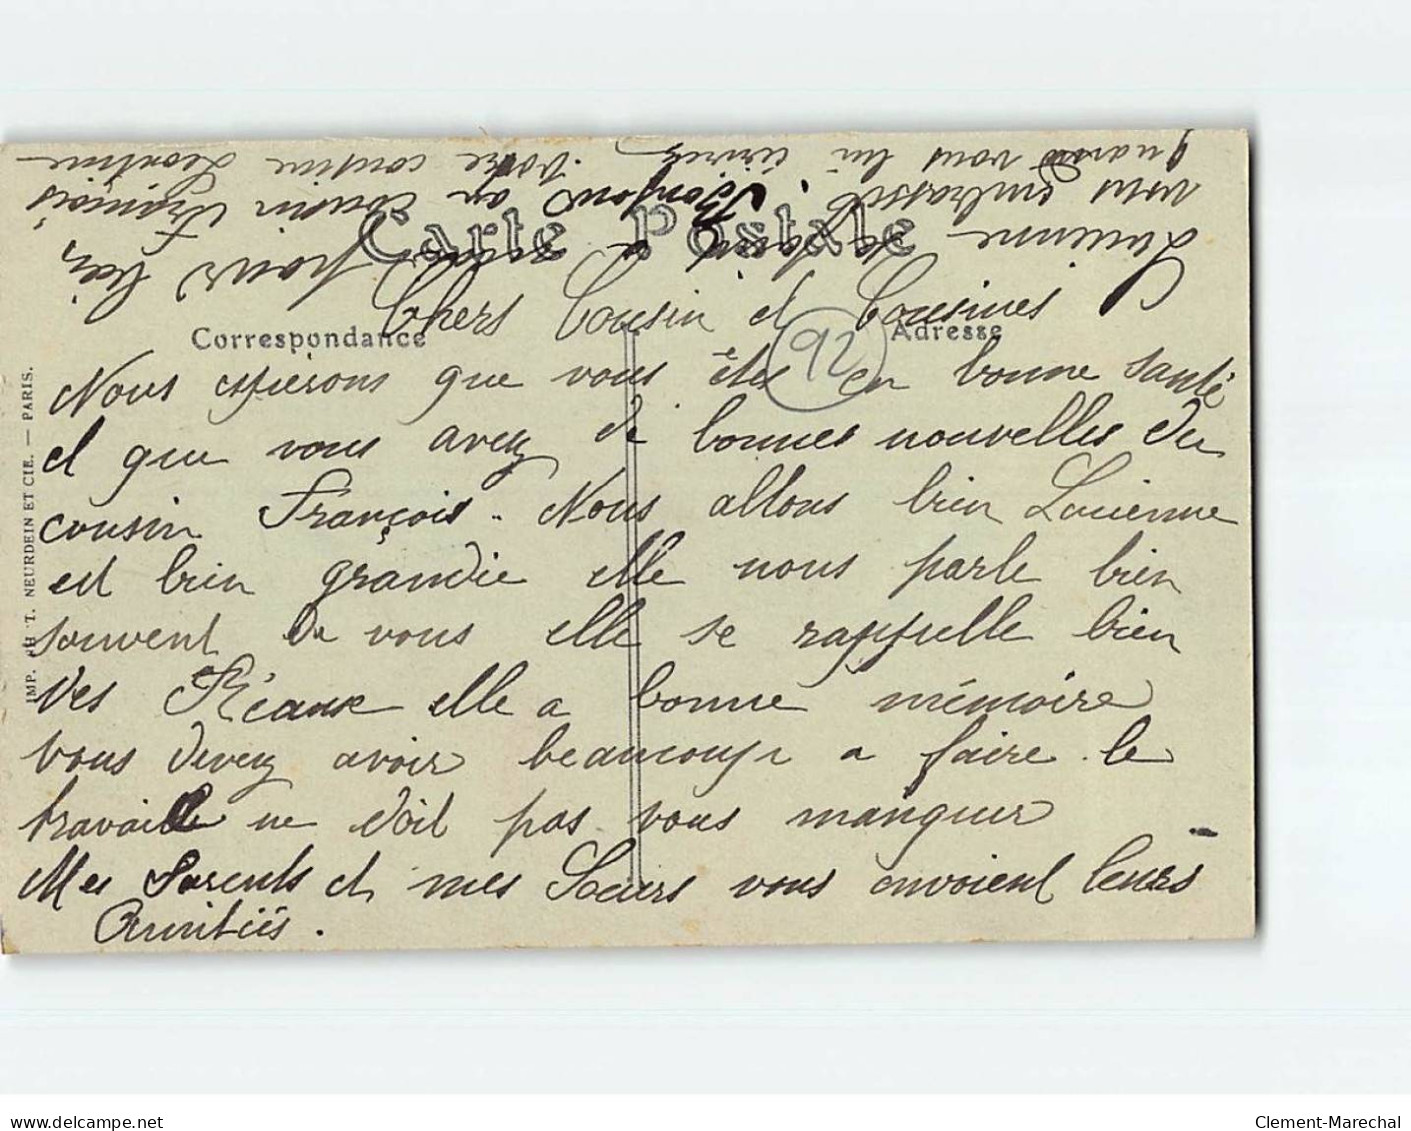 Carte Postale
Correspondance
Adresse
92
IMP. PHOT. NEURDEIN ET CIE. — PARIS.
Chers Cousin et Cousines
Nous espérons que vous êtes en bonne santé
et que vous avez de bonnes nouvelles du
cousin François. Nous allons bien Lucienne
est bien grandie elle nous parle bien
souvent de vous elle se rappelle bien
des Réaux elle a bonne mémoire
vous devez avoir beaucoup a faire le
travaille ne doit pas vous manquer
Mes Parents et mes Soeurs vous envoient leurs
Amitiés.
Lucienne se joint a pour
vous embrasser. Bonjour au cousin François
quand vous lui écrirez Votre cousine Léontine
Clement-Marechal
www.delcampe.net